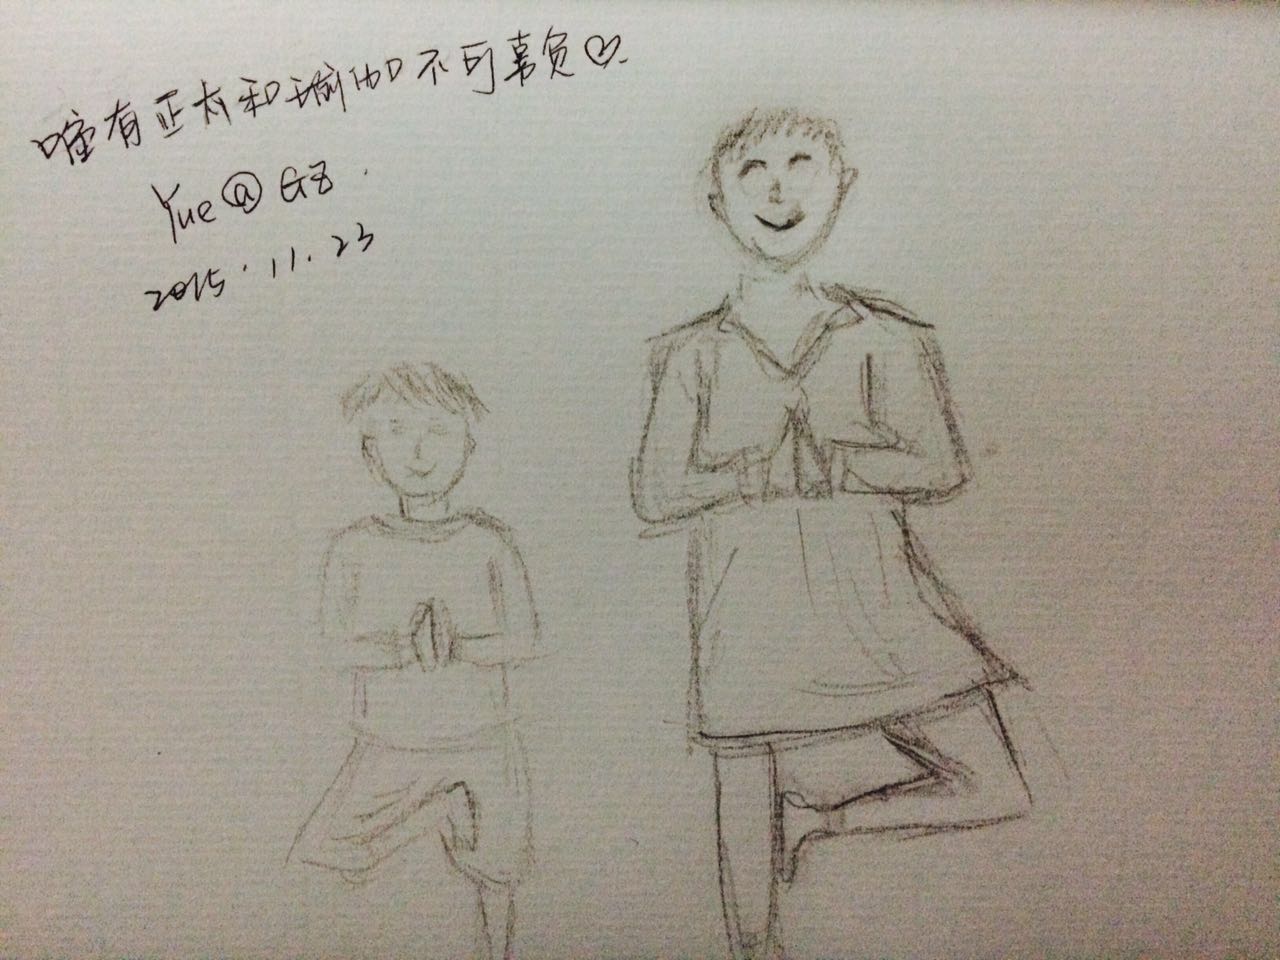 唯有正太和瑜伽不可辜负♡.
Yue@GZ.
2015.11.23